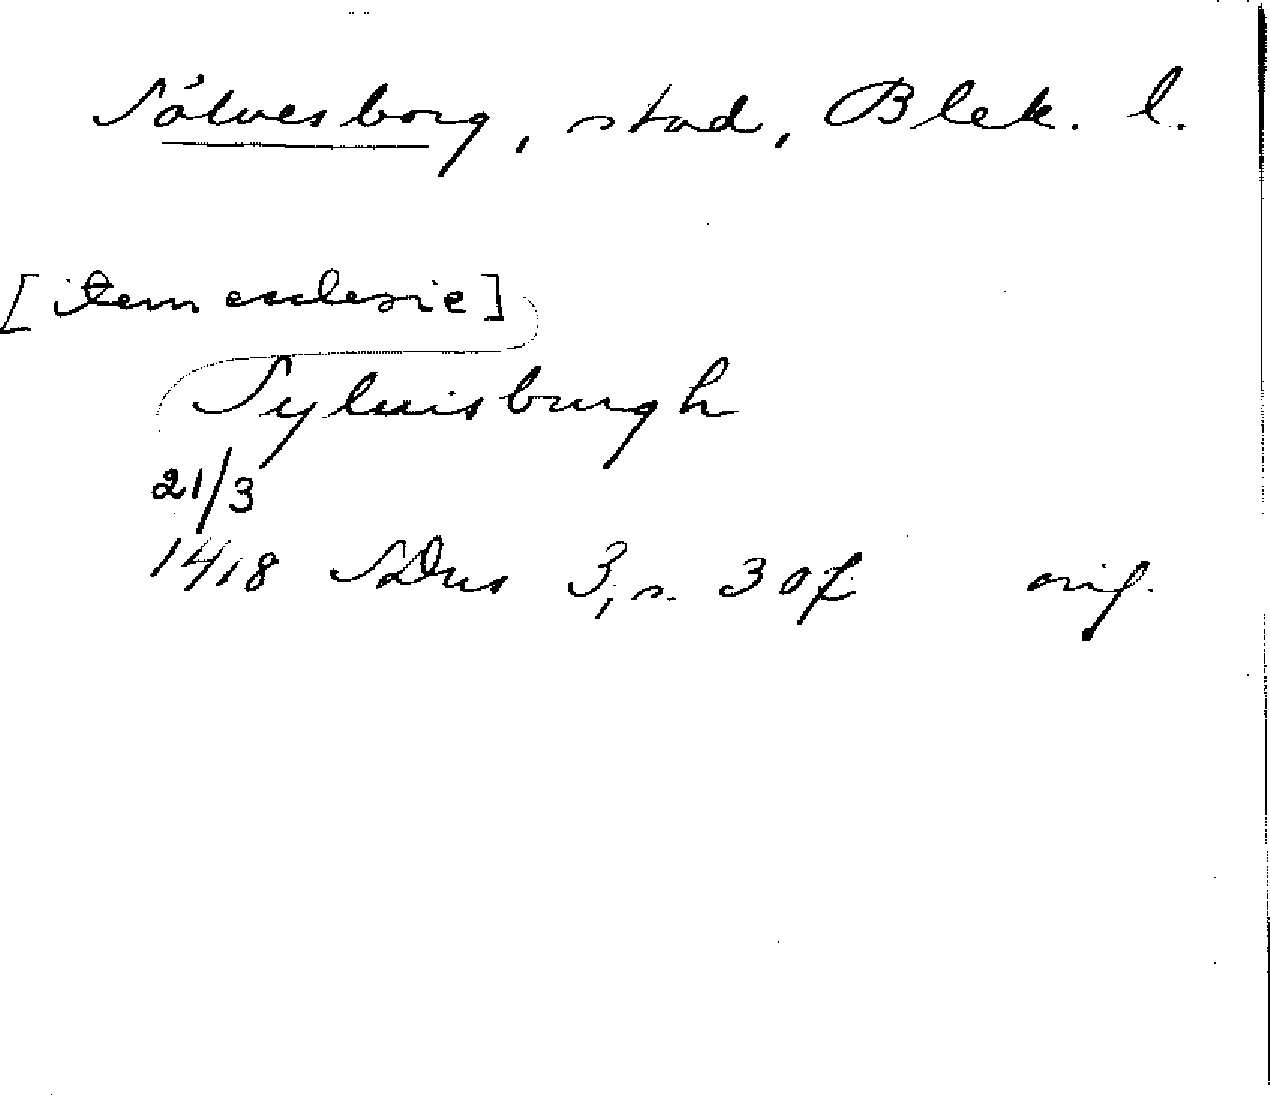 Sölvesborg, stad, Blek. l.
[item ecclesie]
Syluisburgh
21/3
1418 SDns 3, s. 30f. orig.